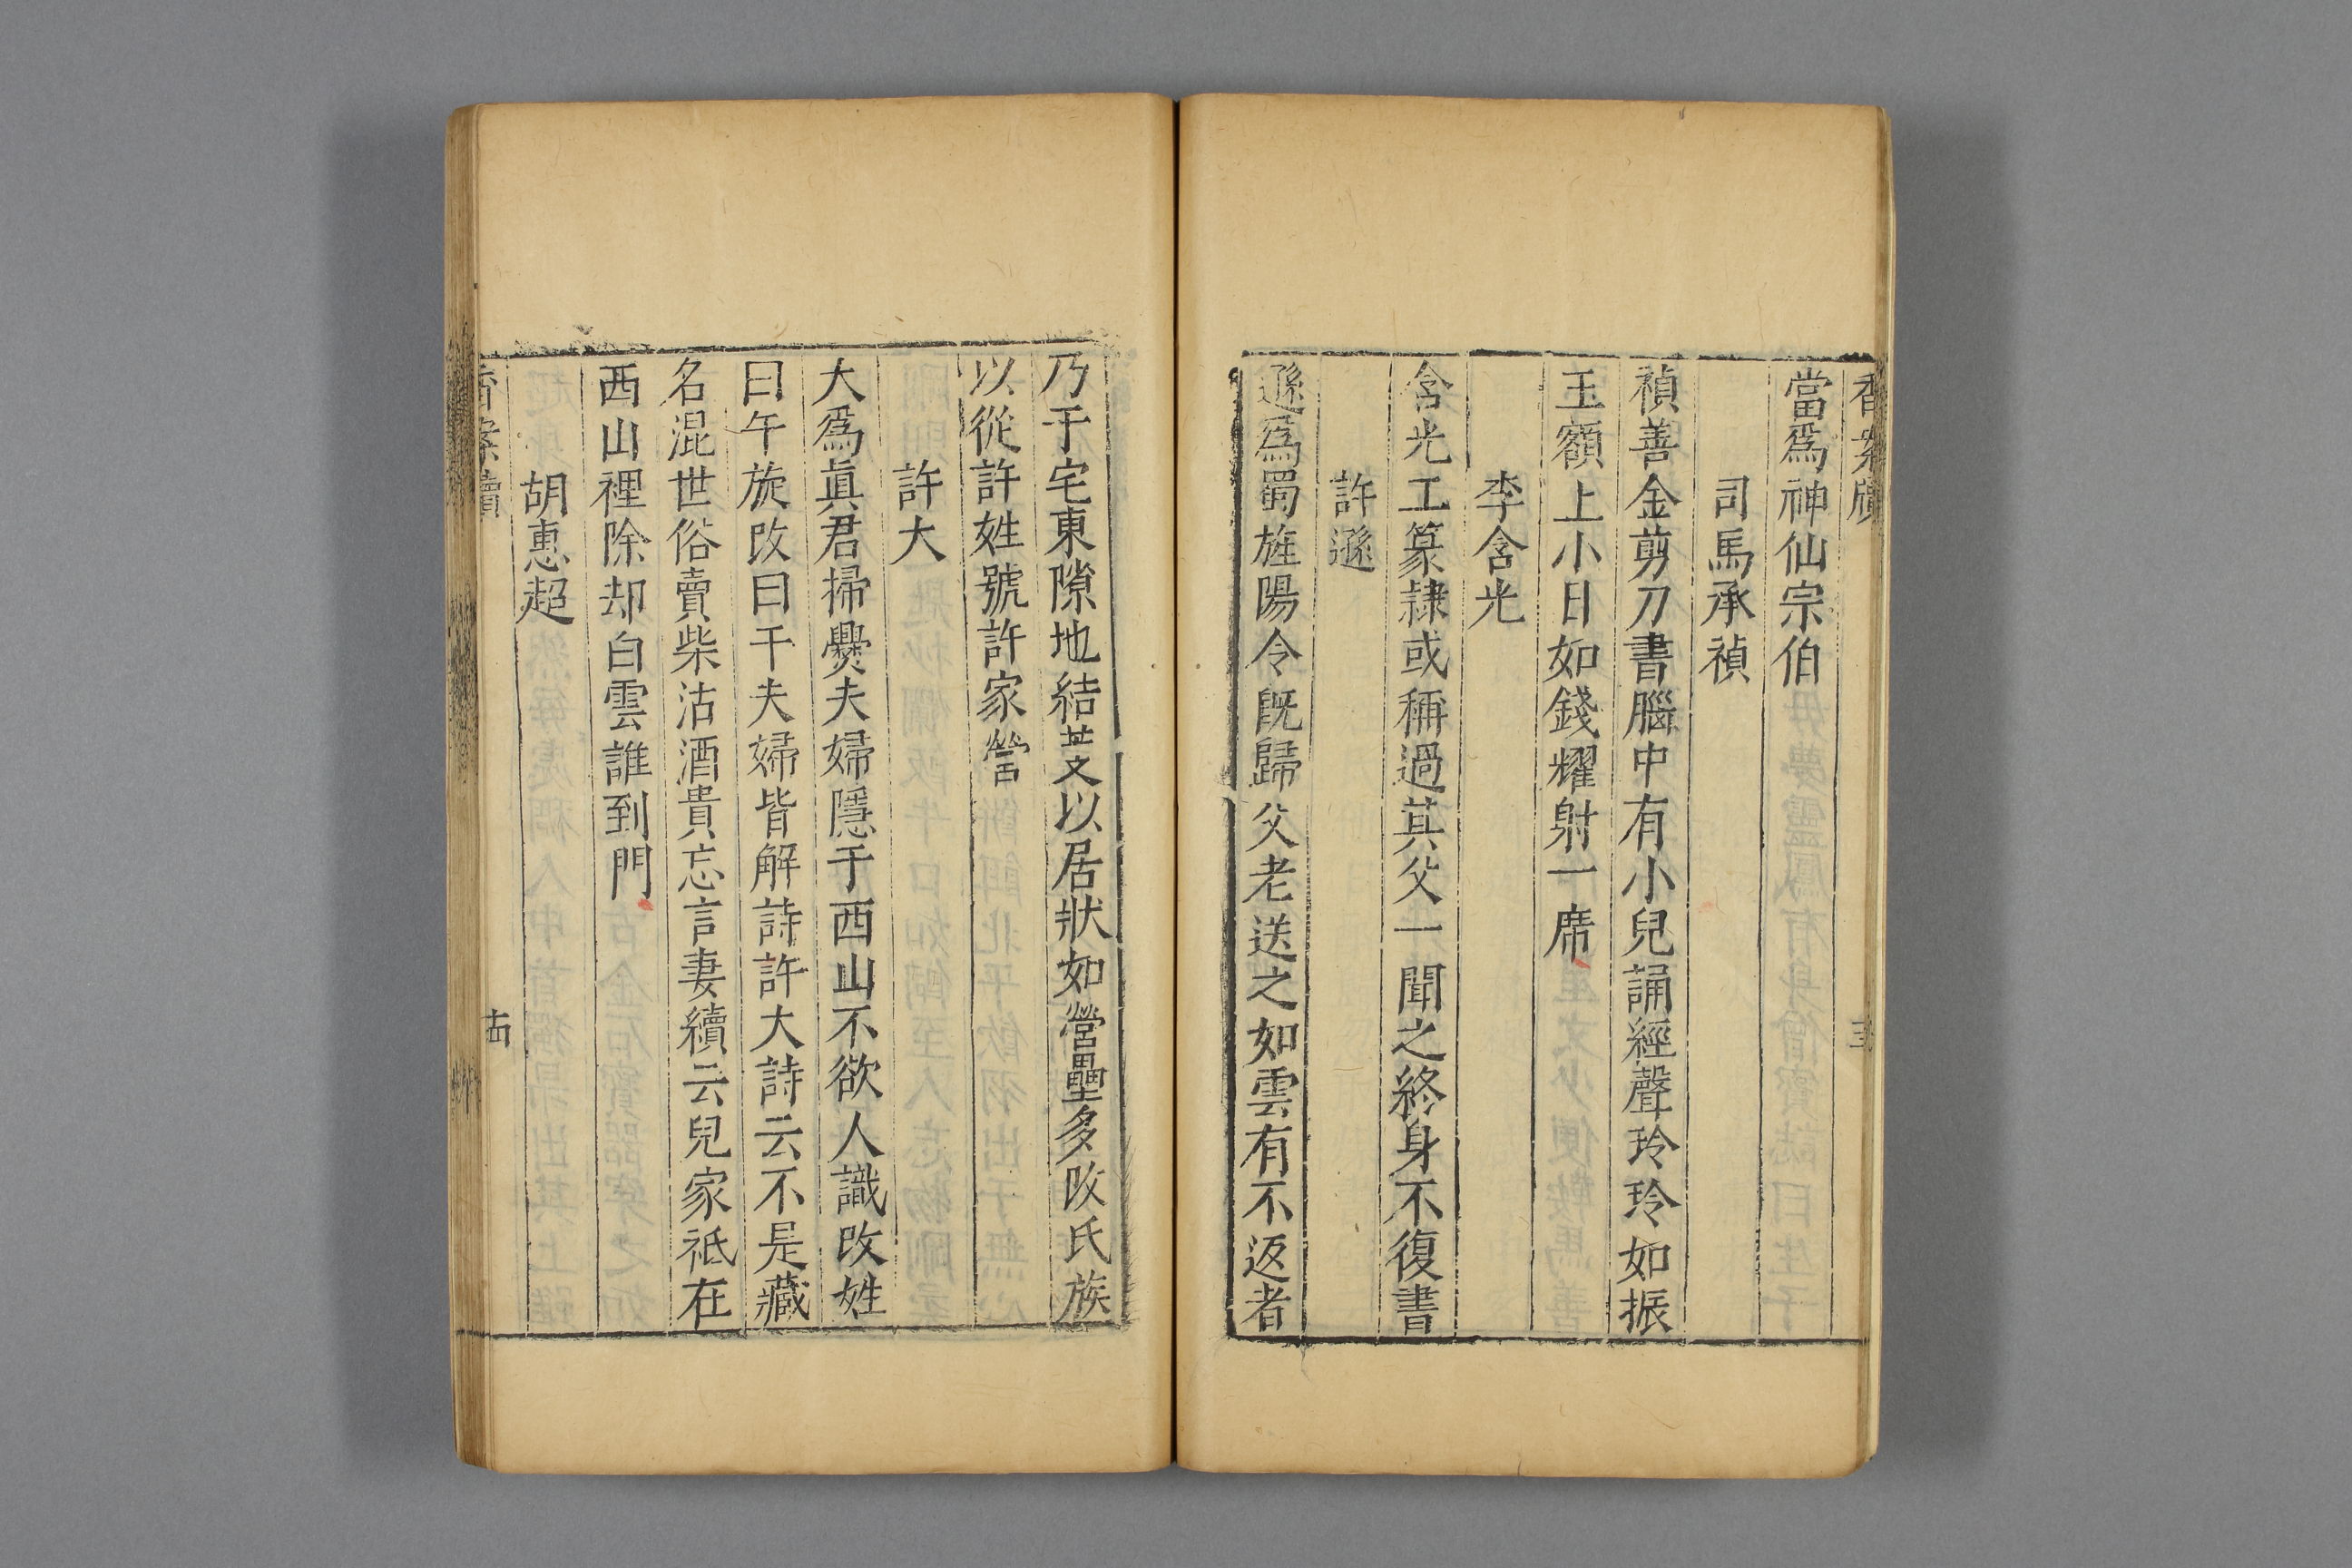 香案牘
當爲神仙宗伯
司馬承禎
禎善金剪刀書腦中有小兒誦經聲玲玲如振
玉額上小日如錢耀射一席
李含光
含光工篆隷或稱過其父一聞之終身不復書
許遜
遜爲蜀旌陽令旣歸父老送之如雲有不返者
乃于宅東隙地結茇以居狀如營壘多改氏族
以從許姓號許家營
許大
大爲眞君掃爨夫婦隱于西山不欲人識改姓
曰午旋改曰干夫婦皆解詩許大詩云不是藏
名混世俗賣柴沽酒貴忘言妻續云兒家祗在
西山裡除却白雲誰到門
胡惠超
香案牘